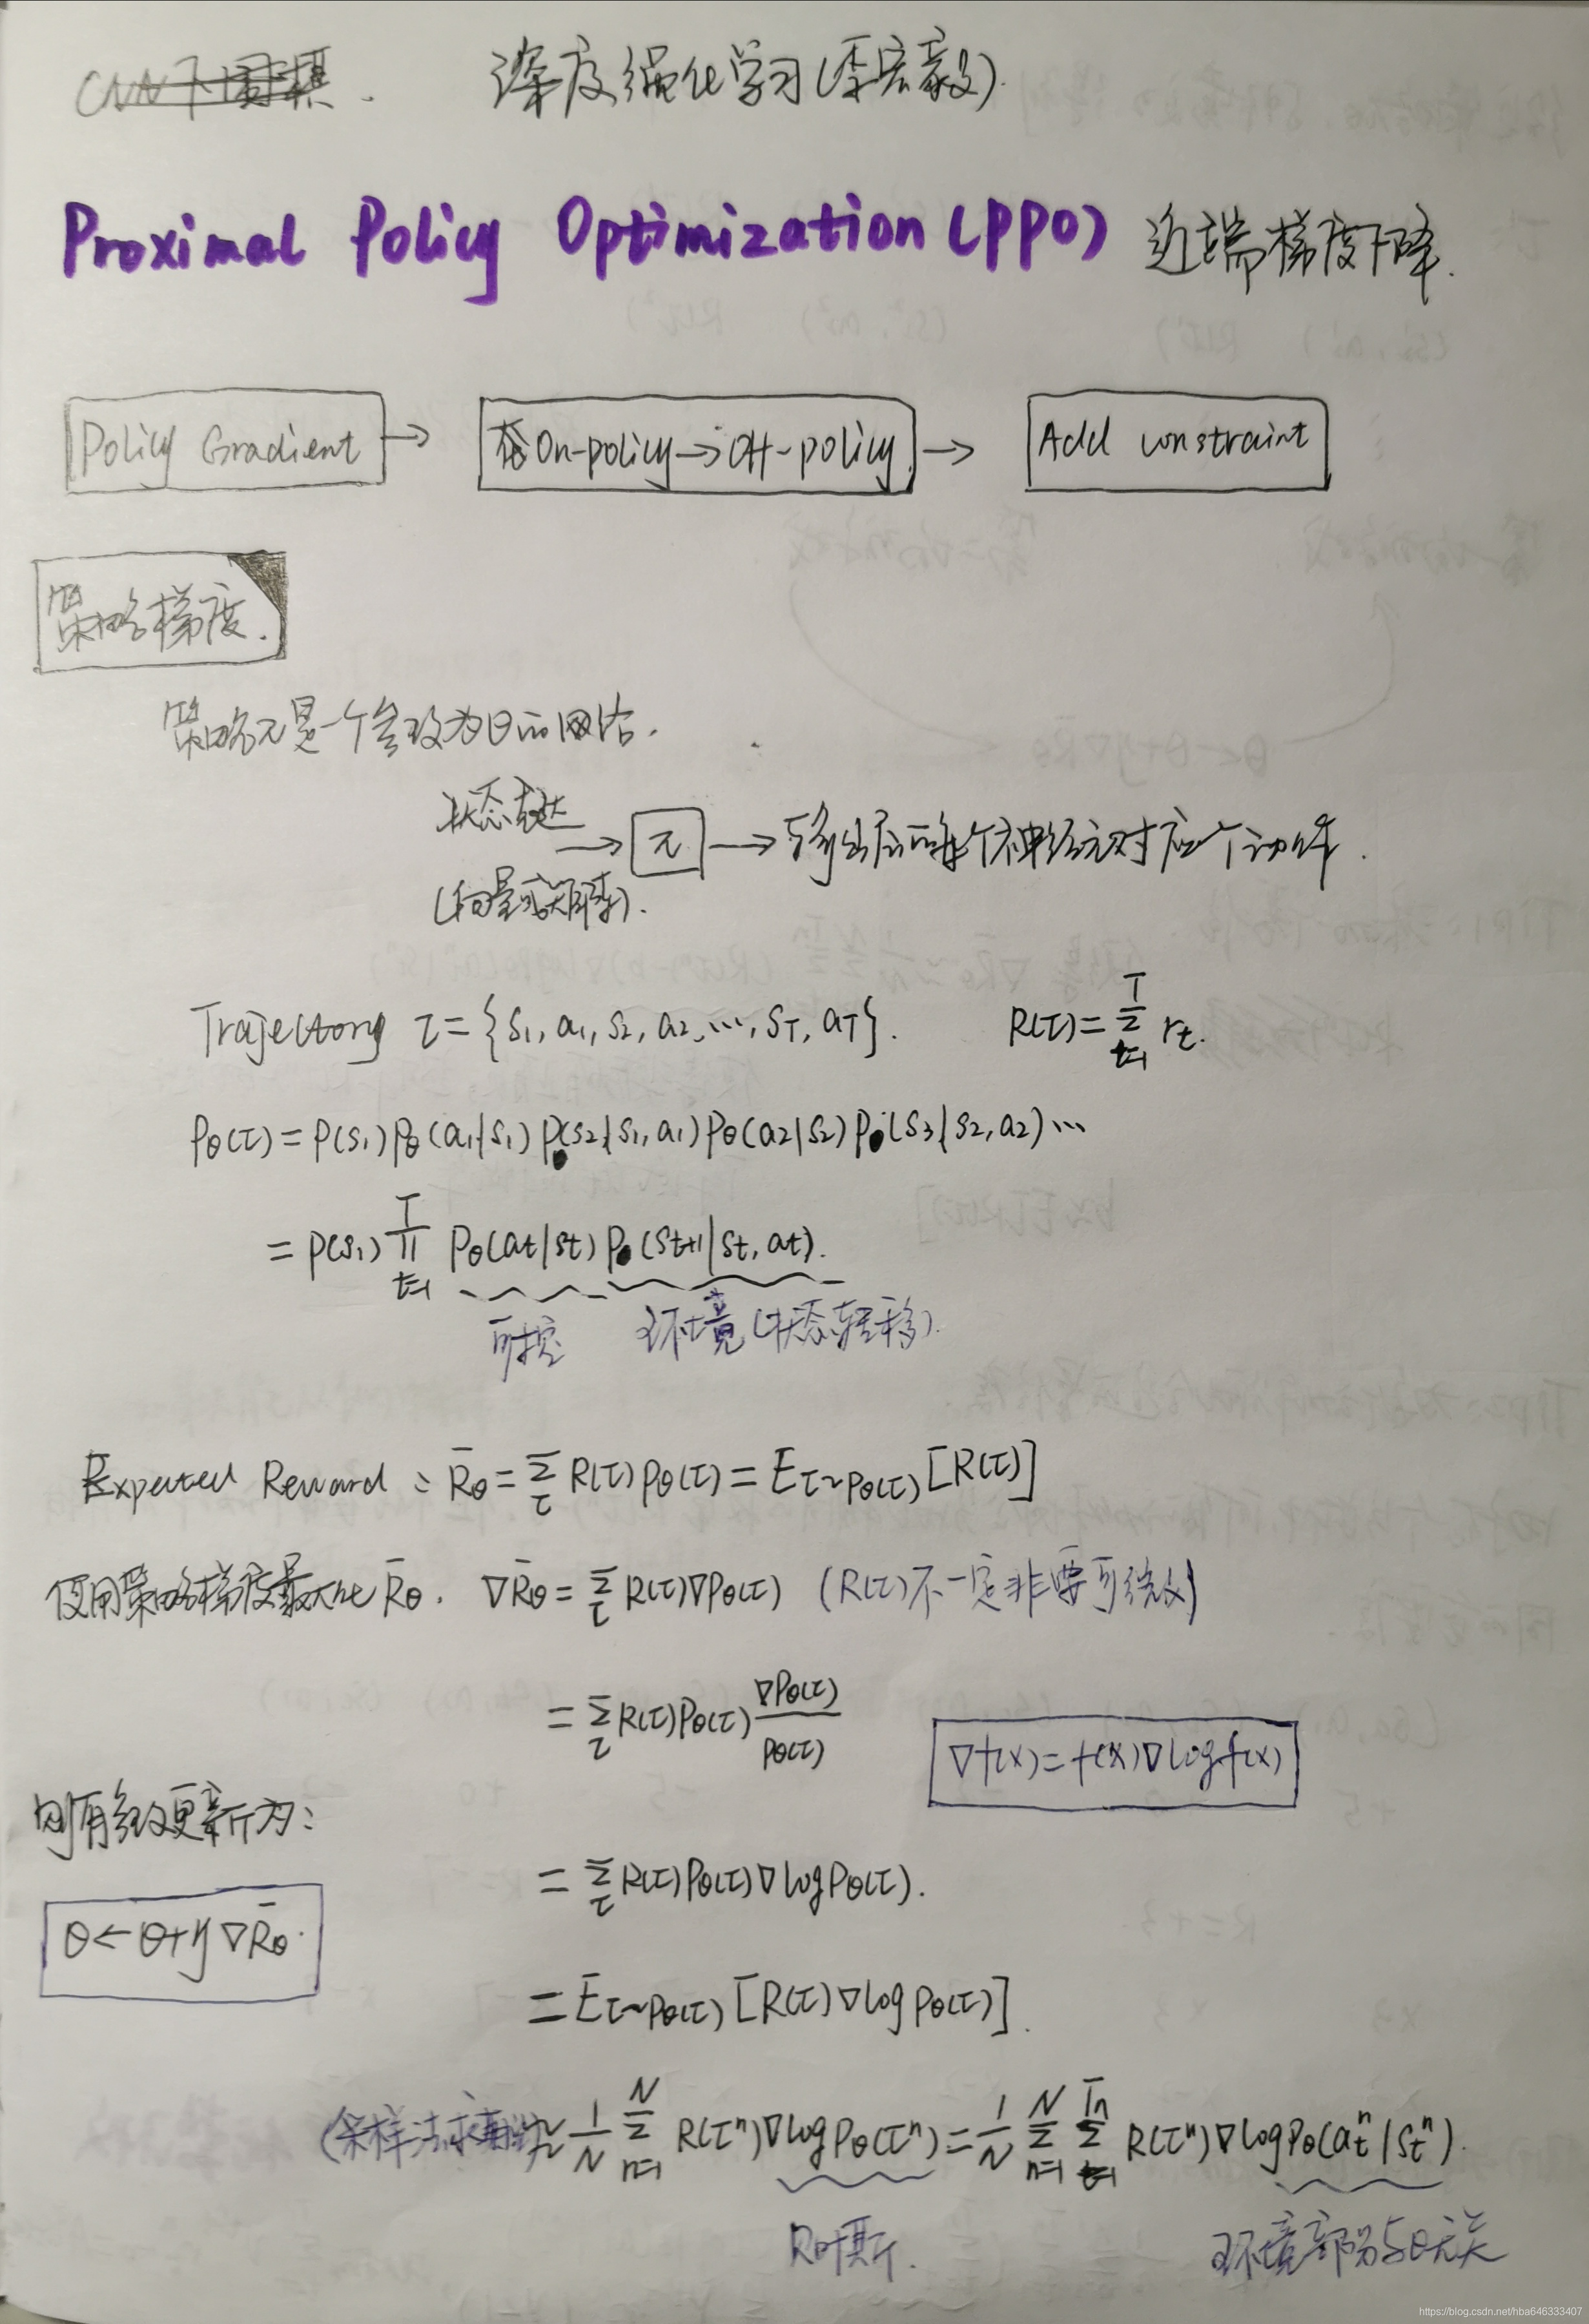 深度强化学习(李宏毅).
Proximal Policy Optimization (PPO) 近端梯度下降.
Policy Gradient → On-policy→Off-policy → Add constraint
策略梯度.
策略π是一个参数为θ的网络.
状态表达
→ π → 输出层的每个神经元对应个动作.
(向量或矩阵).
Trajectory τ={s₁, a₁, s₂, a₂, …, s_T, a_T}. R(τ)=∑_{t=1}^{T} r_t.
p_θ(τ)=p(s₁)p_θ(a₁|s₁)p(s₂|s₁,a₁)p_θ(a₂|s₂)p(s₃|s₂,a₂)…
=p(s₁)∏_{t=1}^{T} p_θ(a_t|s_t)p(s_{t+1}|s_t,a_t).
可控 环境(状态转移).
Expected Reward: R̄_θ=∑_τ R(τ)p_θ(τ)=E_{τ~p_θ(τ)}[R(τ)]
使用策略梯度最大化R̄_θ. ∇R̄_θ=∑_τ R(τ)∇p_θ(τ) (R(τ)不一定非要可微)
=∑_τ R(τ)p_θ(τ) ∇p_θ(τ)/p_θ(τ)
∇f(x)=f(x)∇log f(x)
则有参数更新为:
=∑_τ R(τ)p_θ(τ)∇log p_θ(τ).
θ←θ+η∇R̄_θ.
=E_{τ~p_θ(τ)}[R(τ)∇log p_θ(τ)].
(采样法求期望) ≈ 1/N ∑_{n=1}^{N} R(τⁿ)∇log p_θ(τⁿ)=1/N ∑_{n=1}^{N} ∑_{t=1}^{T_n} R(τⁿ)∇log p_θ(a_tⁿ|s_tⁿ).
环境部分与θ无关
https://blog.csdn.net/hba646333407